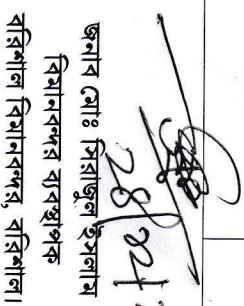 জনাব মোঃ সিরাজুল ইসলাম
বিমানবন্দর ব্যবস্থাপক
বরিশাল বিমানবন্দর, বরিশাল।